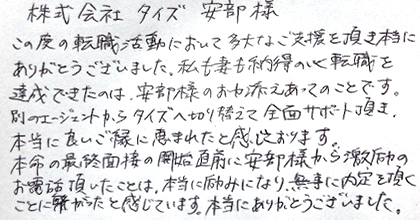 株式会社 タイズ 安部様
この度の転職活動において多大なご支援を頂き本当に
ありがとうございました。私も妻も納得のいく転職を
達成できたのは、安部様のお力添えあってのことです。
別のエージェントからタイズへ切り替えて全面サポート頂き、
本当に良いご縁に恵まれたと感じております。
本命の最終面接の開始直前に安部様から激励の
お電話頂いたことは、本当に励みになり、無事に内定を頂く
ことに繋がったと感じています。本当にありがとうございました。